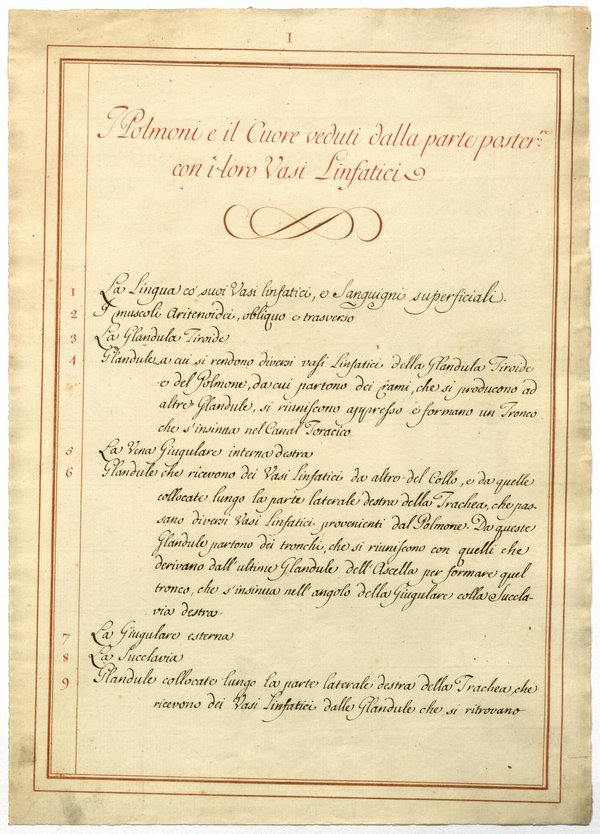 I
I Polmoni e il Cuore veduti dalla parte poster.re
con i loro Vasi Linfatici
1 La Lingua co' suoi Vasi linfatici, e Sanguigni superficiali.
2 I muscoli Aritenoidei, obliquo e trasverso
3 La Glandula Tiroide
4 Glandule a cui si rendono diversi vasi Linfatici della Glandula Tiroide
e del Polmone, da cui partono dei rami, che si producono ad
altre Glandule, si riuniscono appresso e formano un Tronco
che s'insinua nel Canal Toracico
5 La Vena Giugulare interna destra
6 Glandule che ricevono dei Vasi Linfatici da altre del Collo, e da quelle
collocate lungo la parte laterale destra della Trachea, che pas=
sano diversi Vasi Linfatici provenienti dal Polmone. Da queste
Glandule partono dei tronchi, che si riuniscono con quelli che
derivano dall'ultime Glandule dell'Ascella per formare quel
tronco, che s'insinua nell'angolo della Giugulare colla Succla=
via destra.
7 La Giugulare esterna
8 La Succlavia
9 Glandule collocate lungo la parte laterale destra della Trachea, che
ricevono dei Vasi Linfatici dalle Glandule che si ritrovano